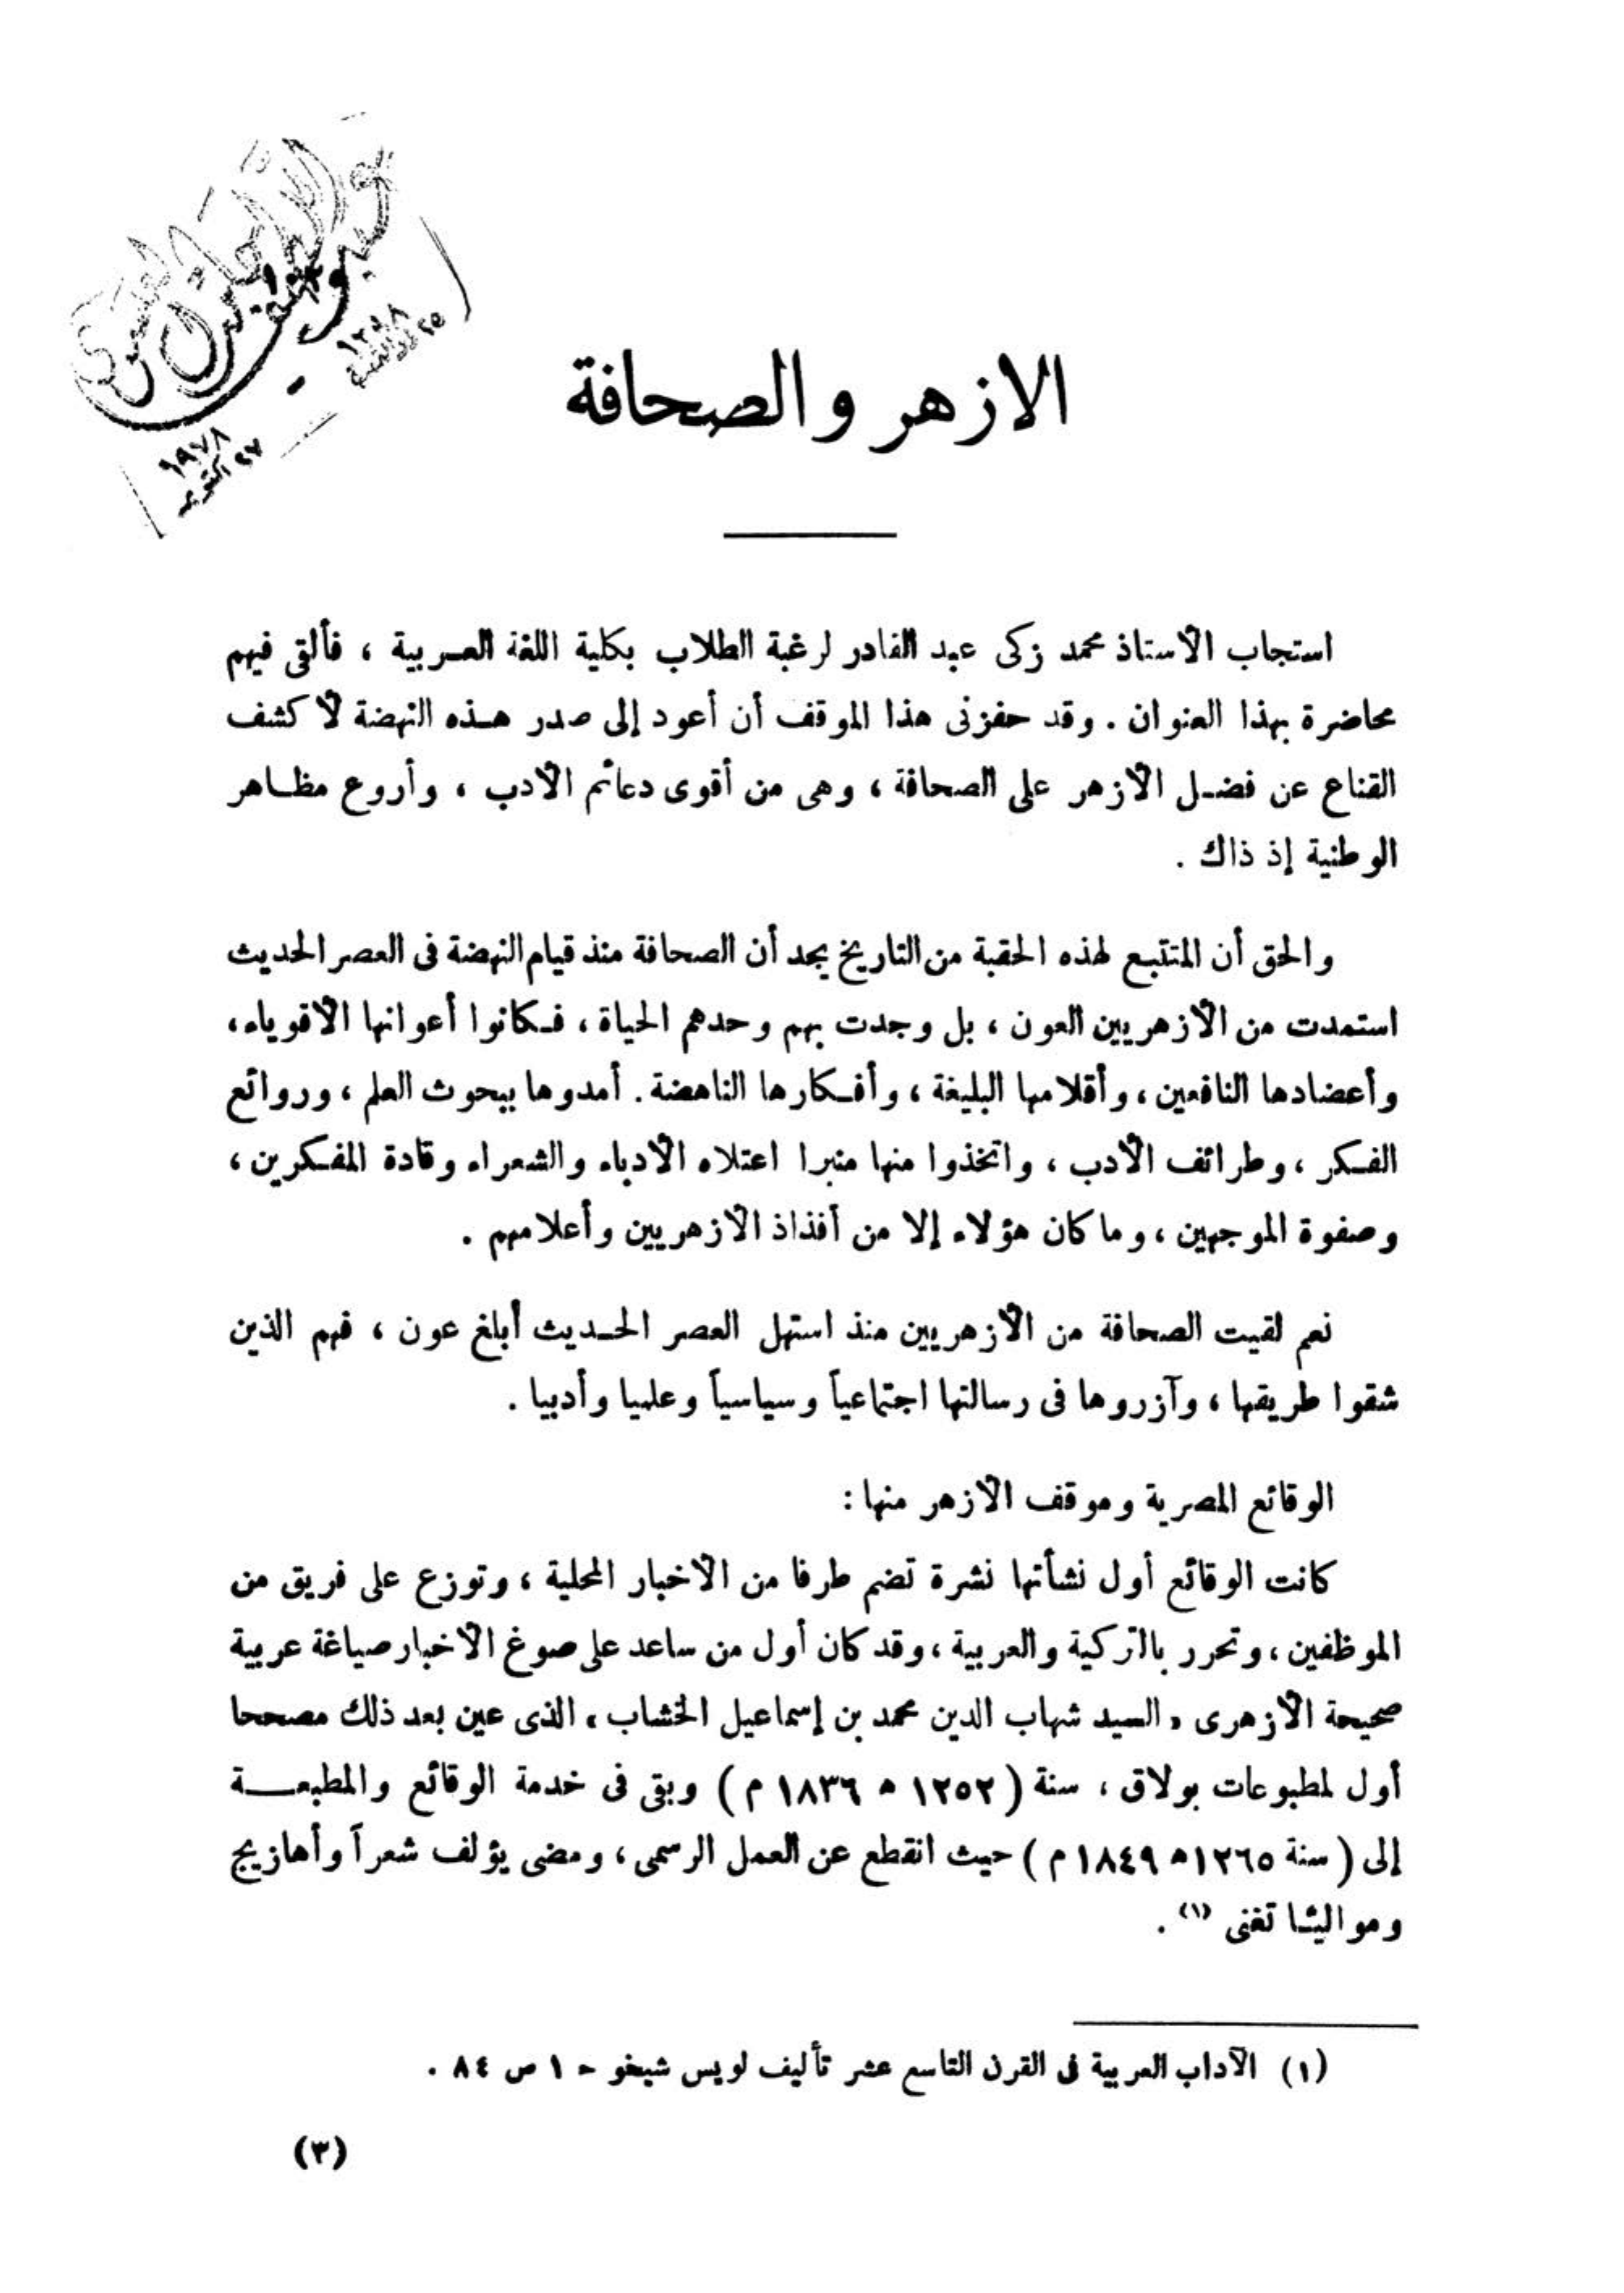 ١٩٧٨
الازهر والصحافة
استجاب الأستاذ محمد زكى عبد القادر لرغبة الطلاب بكلية اللغة العربية ، فألقى فيهم
محاضرة بهذا العنوان . وقد حفزنى هذا الموقف أن أعود إلى صدر هذه النهضة لأكشف
القناع عن فضل الأزهر على الصحافة ، وهى من أقوى دعائم الأدب ، وأروع مظاهر
الوطنية إذ ذاك .
والحق أن المتتبع لهذه الحقبة من التاريخ يجد أن الصحافة منذ قيام النهضة فى العصر الحديث
استمدت من الأزهريين العون ، بل وجدت بهم وحدهم الحياة ، فكانوا أعوانها الأقوياء ،
وأعضادها النافعين ، وأقلامها البليغة ، وأفكارها الناهضة . أمدوها ببحوث العلم ، وروائع
الفكر ، وطرائف الأدب ، واتخذوا منها منبرا اعتلاه الأدباء والشعراء وقادة المفكرين ،
وصفوة الموجهين ، وما كان هؤلاء إلا من أفذاذ الأزهريين وأعلامهم .
نعم لقيت الصحافة من الأزهريين منذ استهل العصر الحديث أبلغ عون ، فهم الذين
شقوا طريقها ، وآزروها فى رسالتها اجتماعياً وسياسياً وعلميا وأدبيا .
الوقائع المصرية وموقف الأزهر منها :
كانت الوقائع أول نشأتها نشرة تضم طرفا من الأخبار المحلية ، وتوزع على فريق من
الموظفين ، وتحرر بالتركية والعربية ، وقد كان أول من ساعد على صوغ الأخبار صياغة عربية
صحيحة الأزهرى « السيد شهاب الدين محمد بن إسماعيل الخشاب » الذى عين بعد ذلك مصححا
أول لمطبوعات بولاق ، سنة ( ١٢٥٢ ه ١٨٣٦ م ) وبقى فى خدمة الوقائع والمطبعة
إلى ( سنة ١٢٦٥ه ١٨٤٩ م ) حيث انقطع عن العمل الرسمى ، ومضى يؤلف شعراً وأهازيج
ومواليثا تغنى (١) .
(١) الآداب العربية فى القرن التاسع عشر تأليف لويس شيخو ح ١ ص ٨٤ .
(٣)